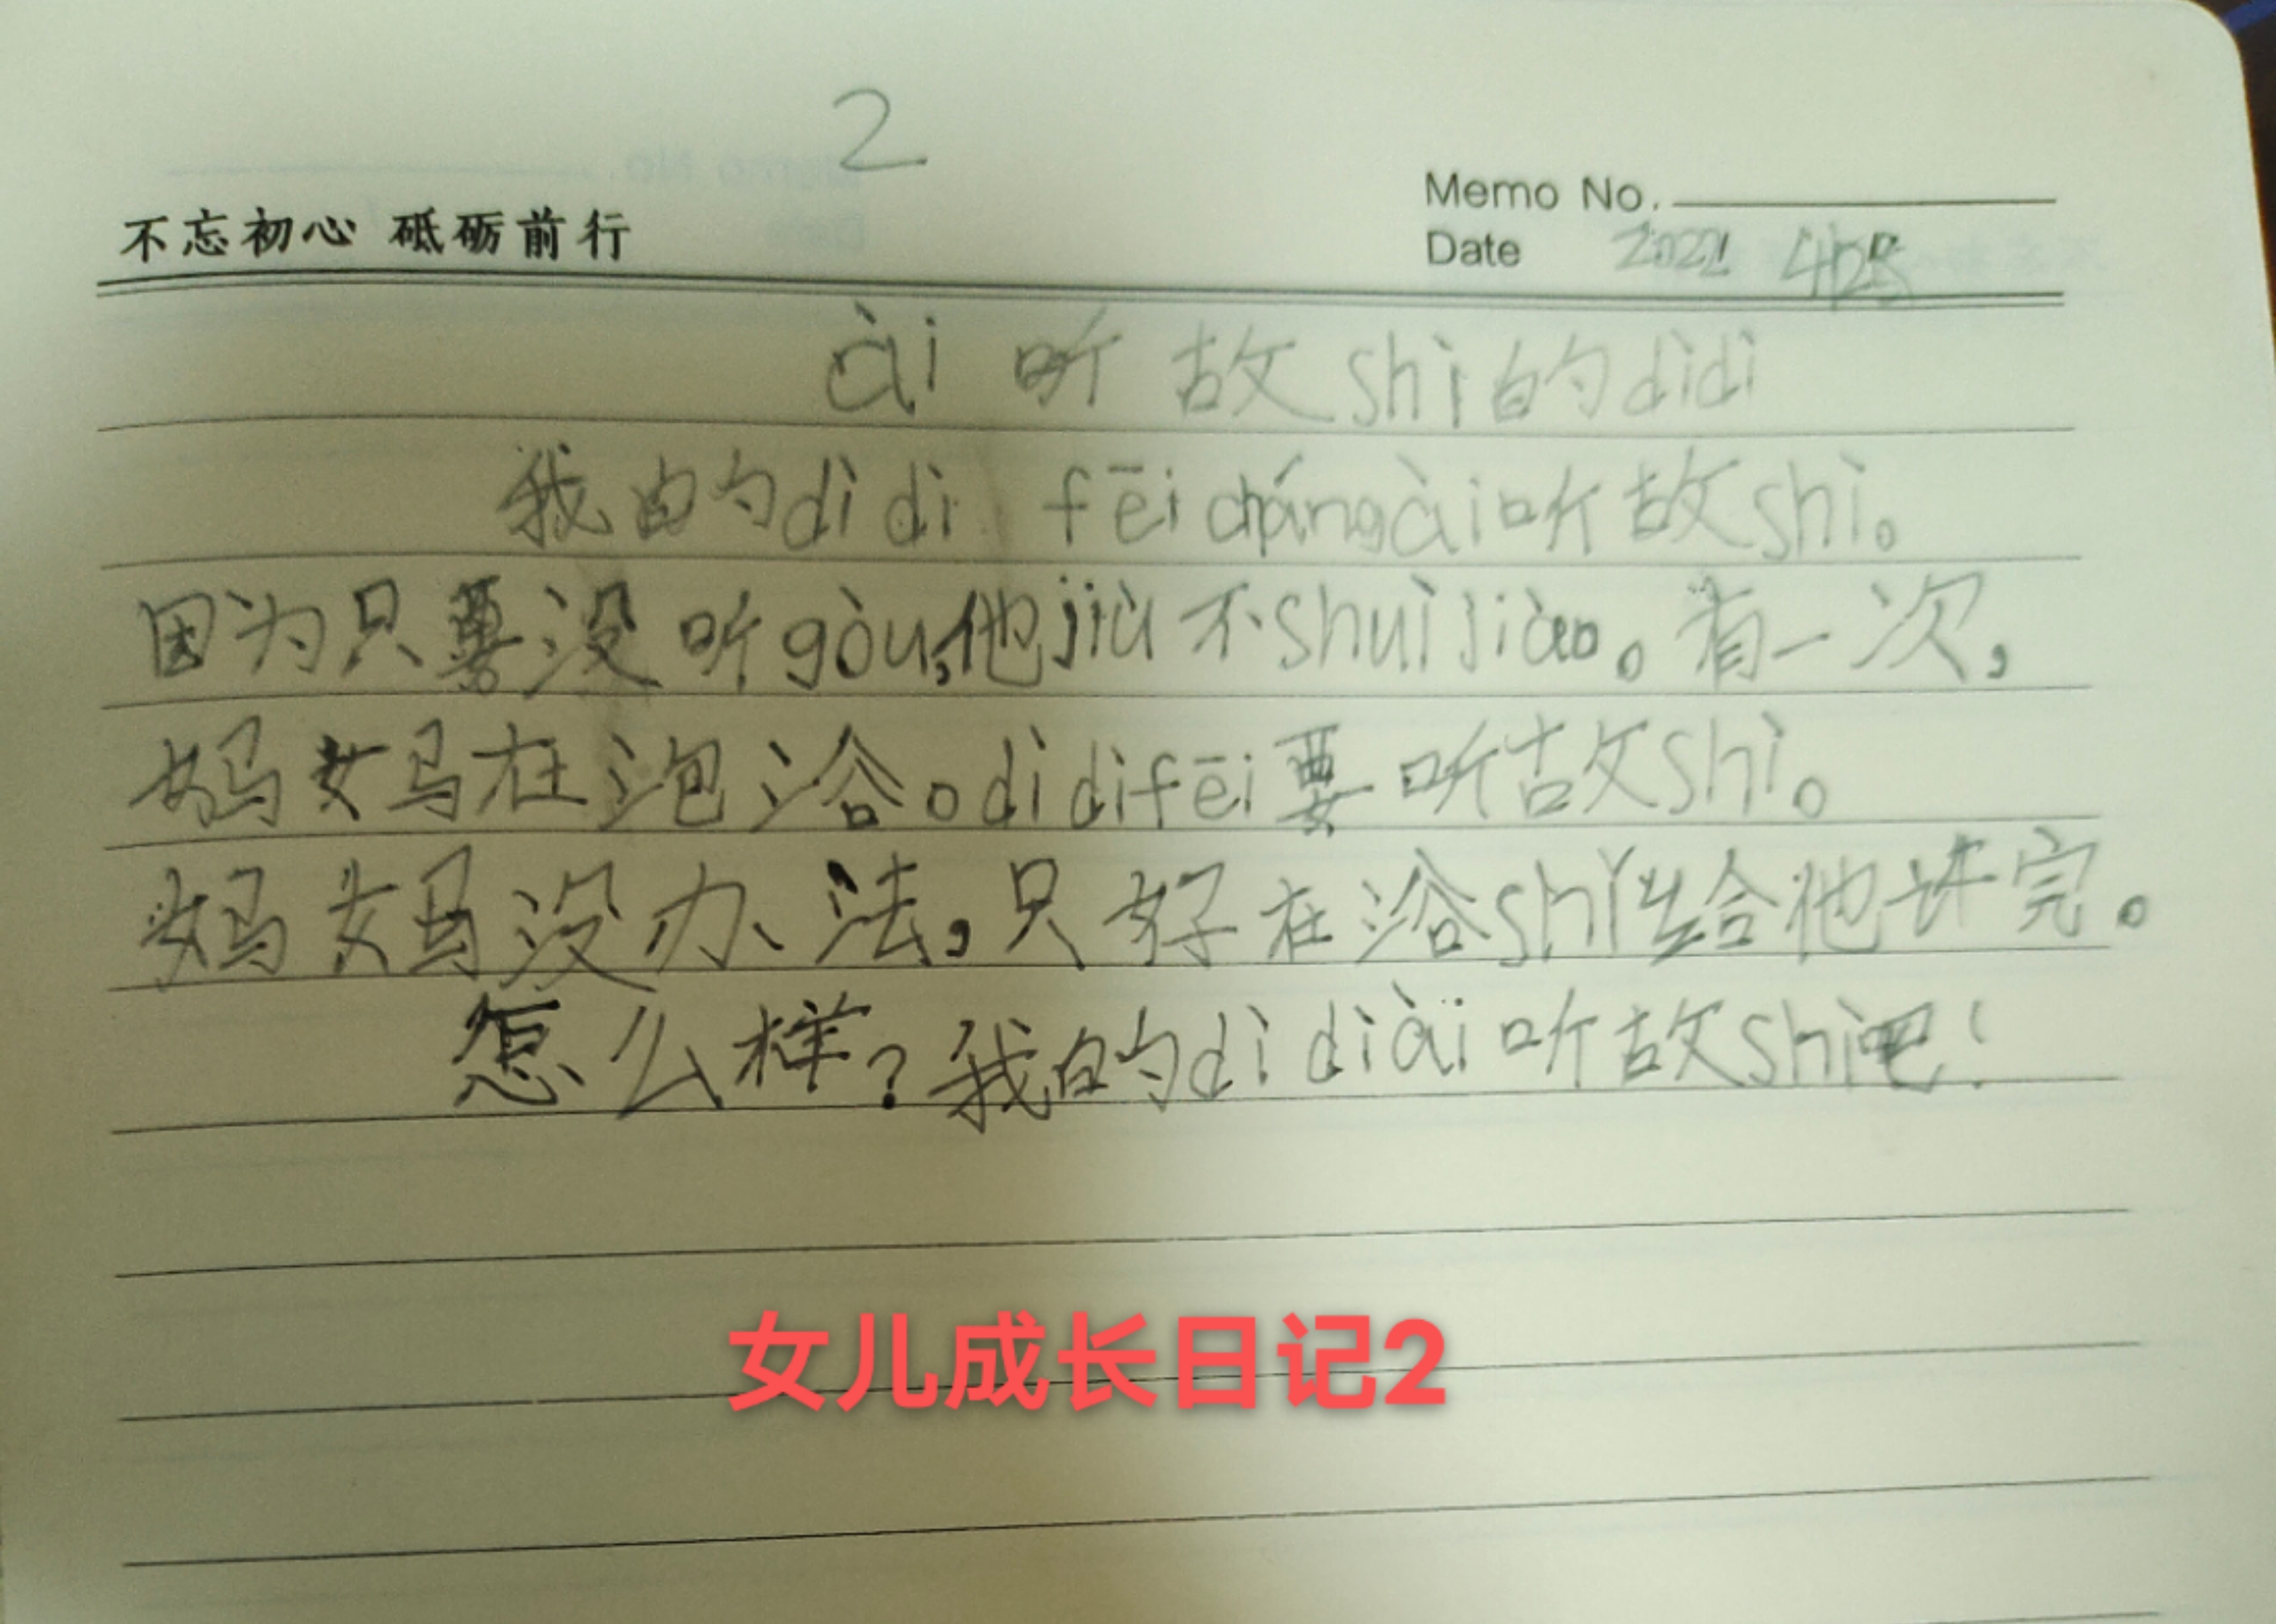 2
不忘初心 砥砺前行
Memo No.
Date 2022 4/25
ài 听故shì的dìdi
我的dìdi fēi chángài听故shì。
因为只要没听gòu,他jiù不shuìjiào。有一次,
妈妈在泡浴。dìdifēi要听故shì。
妈妈没办法,只好在浴shǐ给他讲完。
怎么样?我的dìdiài听故shì吧!
女儿成长日记2